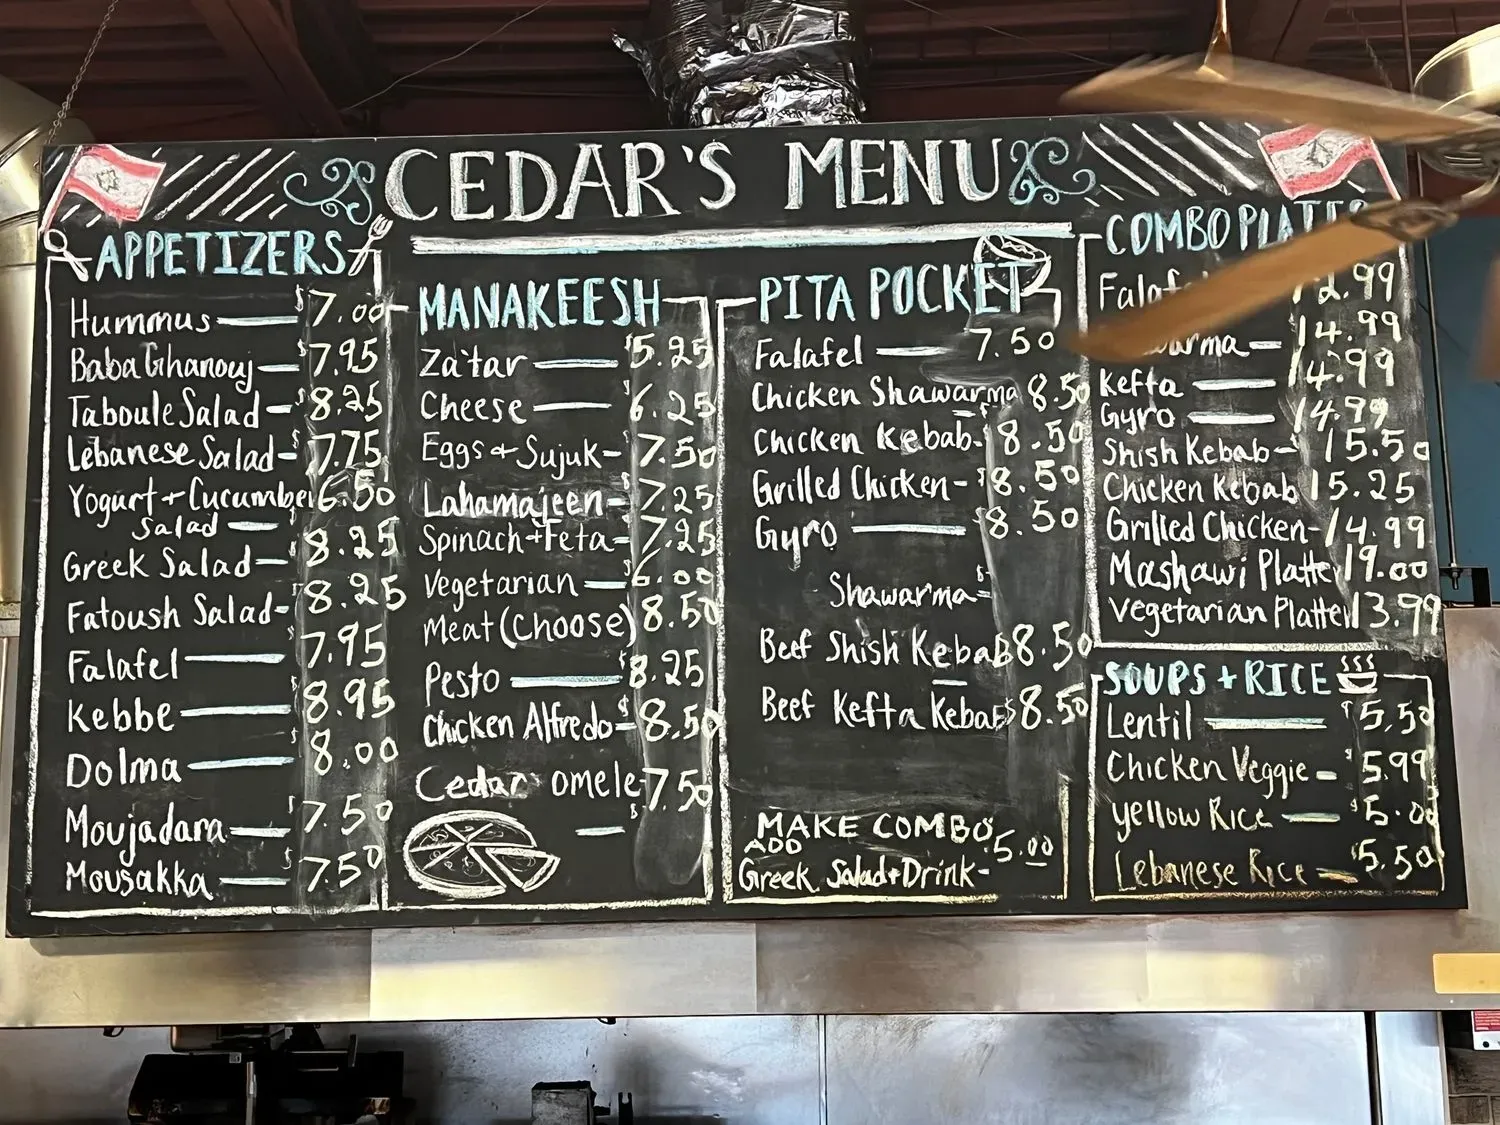 CEDAR'S MENU
APPETIZERS
Hummus $7.00
Baba Ghanouj $7.95
Taboule Salad $8.25
Lebanese Salad $7.75
Yogurt + Cucumber 6.50
Salad
Greek Salad $8.25
Fatoush Salad $8.25
Falafel $7.95
Kebbe $8.95
Dolma $8.00
Moujadara $7.50
Mousakka $7.50
MANAKEESH
Za'tar $5.25
Cheese $6.25
Eggs + Sujuk $7.50
Lahamajeen $7.25
Spinach + Feta $7.25
Vegetarian $6.00
Meat (Choose) 8.50
Pesto $8.25
Chicken Alfredo $8.50
Cedar omele 7.50
PITA POCKET
Falafel 7.50
Chicken Shawarma 8.50
Chicken Kebab $8.50
Grilled Chicken $8.50
Gyro $8.50
Shawarma $
Beef Shish Kebab 8.50
Beef Kefta Kebab $8.50
MAKE COMBO
ADD $5.00
Greek Salad + Drink
COMBO
14.99
Kefta 14.99
Gyro 14.99
Shish Kebab 15.50
Chicken Kebab 15.25
Grilled Chicken 14.99
Mashawi Platter 19.00
Vegetarian Platter 13.99
SOUPS + RICE
Lentil $5.50
Chicken Veggie $5.99
Yellow Rice $5.00
Lebanese Rice $5.50